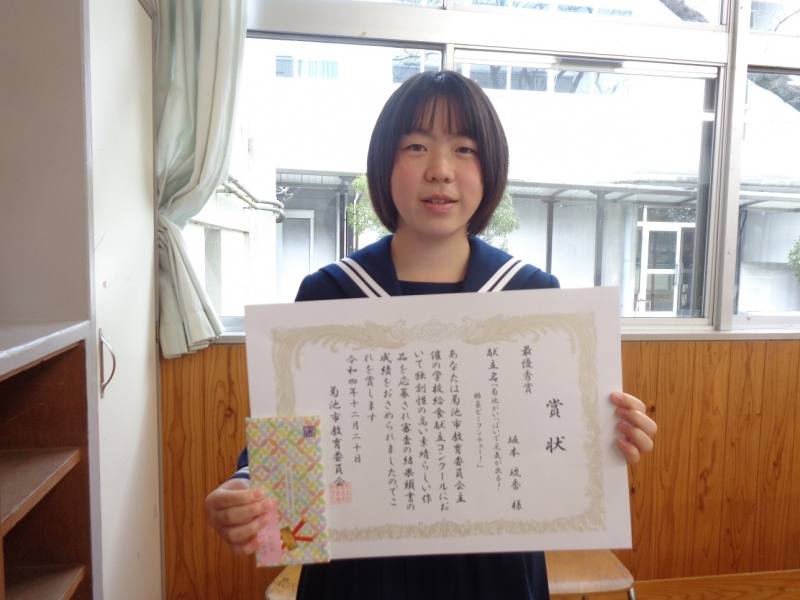 賞状
最優秀賞
坂本 琉杏 様
献立名「菊池がいっぱいで元気が出る！
ビーフンチュー！」
あなたは菊池市教育委員会主
催の学校給食献立コンクールにお
いて独創性の高い素晴らしい作
品を応募され審査の結果頭書の
成績をおさめられましたのでこ
れを賞します
令和四年十二月二十日
菊池市教育委員会